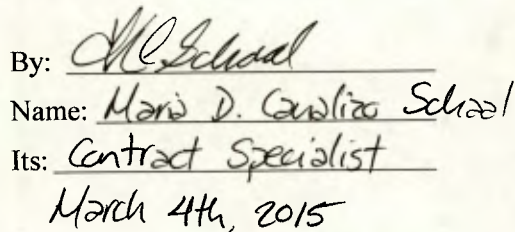 By: MCSchaal
Name: Maria D. Cavalizo Schaal
Its: Contract Specialist
March 4th, 2015